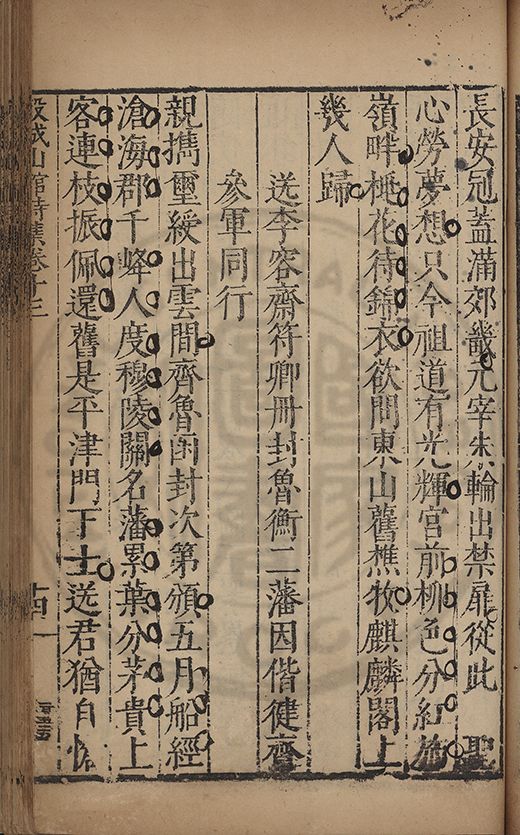 長安冠蓋滿郊畿元宰朱輪出禁扉從此 聖
心勞夢想只今祖道有光輝宮前柳色分紅旆
嶺畔桃花待錦衣欲問東山舊樵牧麒麟閣上
幾人歸
送李容齋符卿冊封魯衡二藩因偕健齋
參軍同行
親擕璽綬出雲間齊魯封次第頒五月船經
滄海郡千峰人度穆陵關名藩累葉分茅貴上
客連枝振佩還舊是平津門下士送君猶自愧
穀城山館詩集卷十三
十四